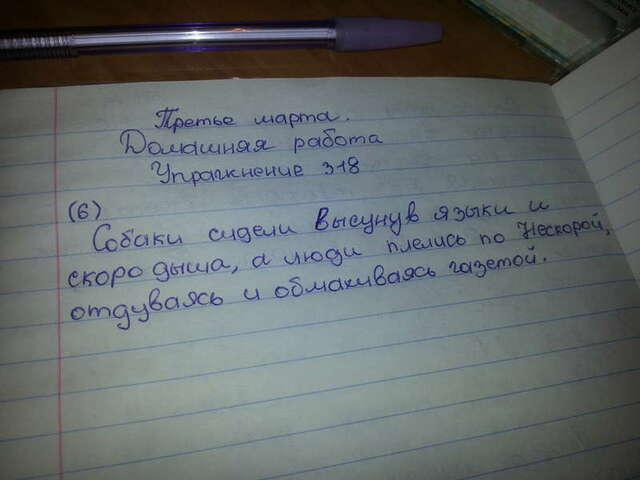 Третье марта.
Домашняя работа
Упражнение 318
(6)
Собаки сидели высунув языки и
скоро дыша, а люди плелись по Нескорой,
отдуваясь и обмахиваясь газетой.